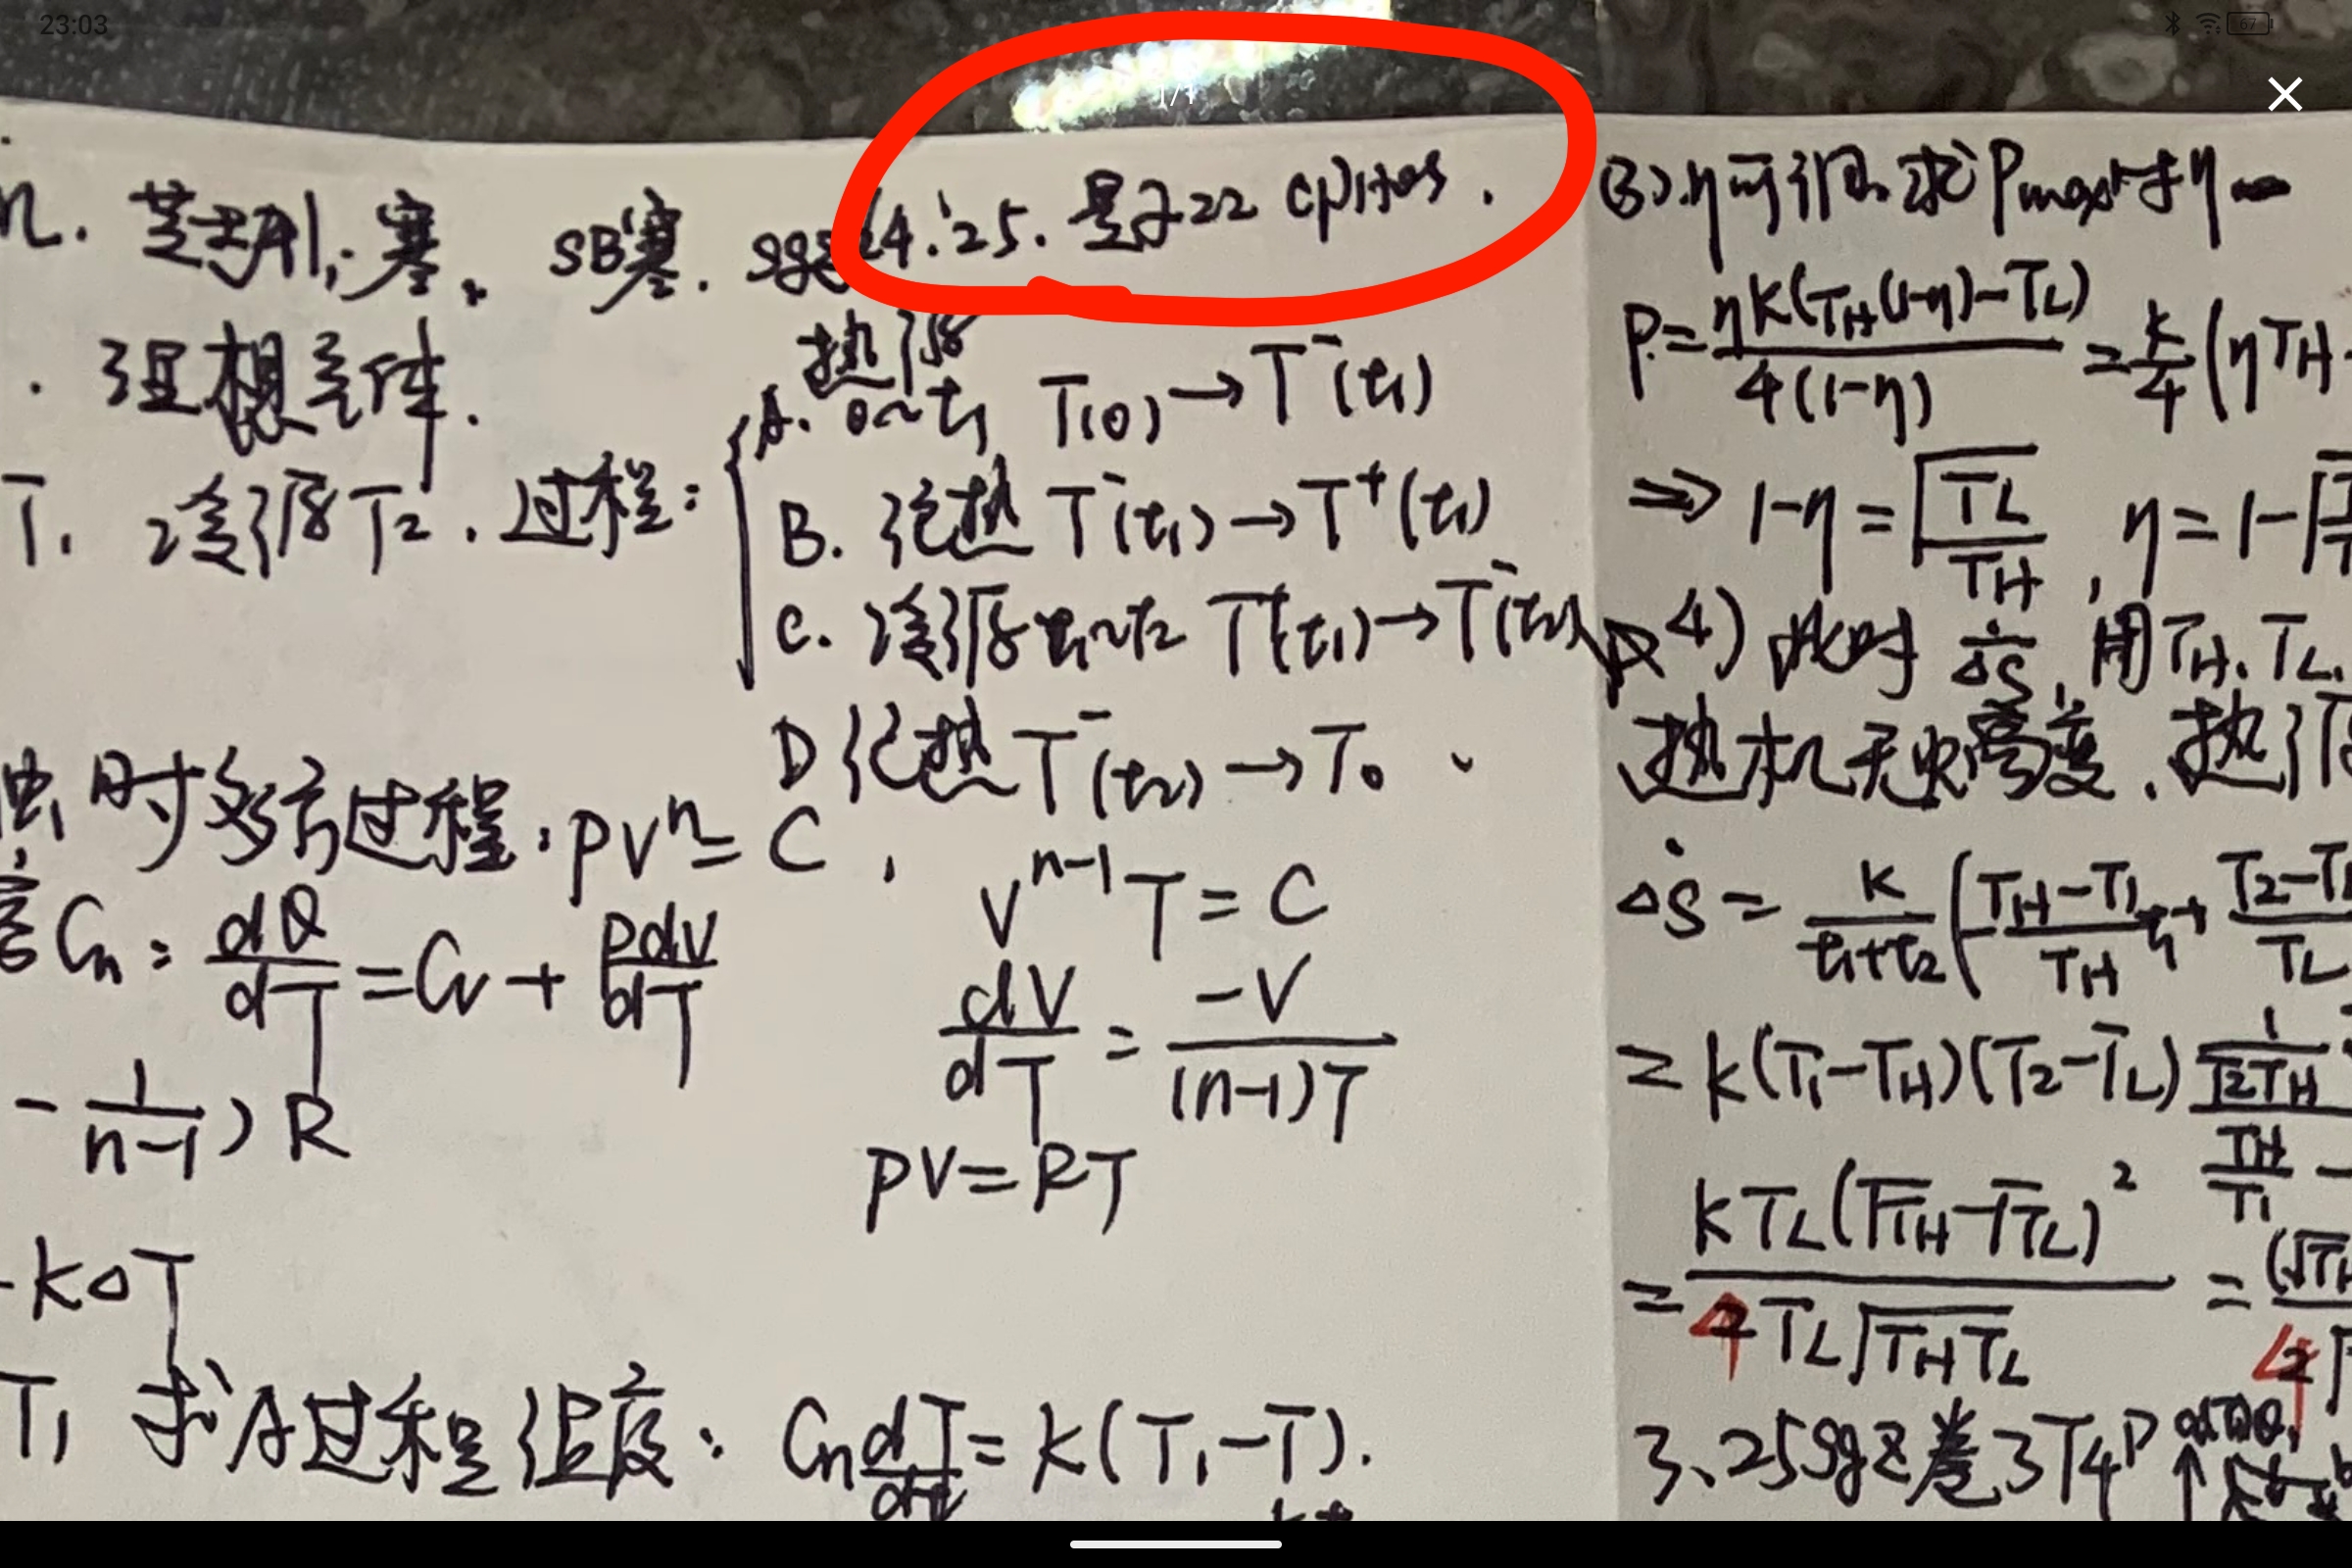 23:03
67
1/1
n. 芝士刑, 寒. SB寒. sgz24.'25. 是子22 cphos.
理想气体.
T₁ 冷源T₂. 过程:
热源
A. 0~t₁ T(0)→T⁻(t₁)
B. 绝热 T⁻(t₁)→T⁺(t₁)
C. 冷源 t₁~t₂ T⁺(t₁)→T⁻(t₂)
D 绝热 T⁻(t₂)→T₀
时多方过程, pVⁿ=C,
Vⁿ⁻¹T=C
容Cₙ: dQ/dT=Cv+pdV/dT
dV/dT=-V/(n-1)T
-1/(n-1))R
pV=RT
-K△T
T₁ 求A过程温度: Cₙ dT/dt=K(T₁-T).
(3).η可调. 求Pmax时η
P=ηK(TH(1-η)-TL)/4(1-η)=K/4(ηTH
⇒1-η=√TL/TH, η=1-√
4) 此时△Ṡ, 用TH. TL.
热机无
△Ṡ=K/(t₁+t₂)(-(TH-T₁)/TH t₁+(T₂-TL
=K(T₁-TH)(T₂-TL)
=KTL(√TH-√TL)²/4TL√THTL=(√TH
3、25sgz卷3T4P